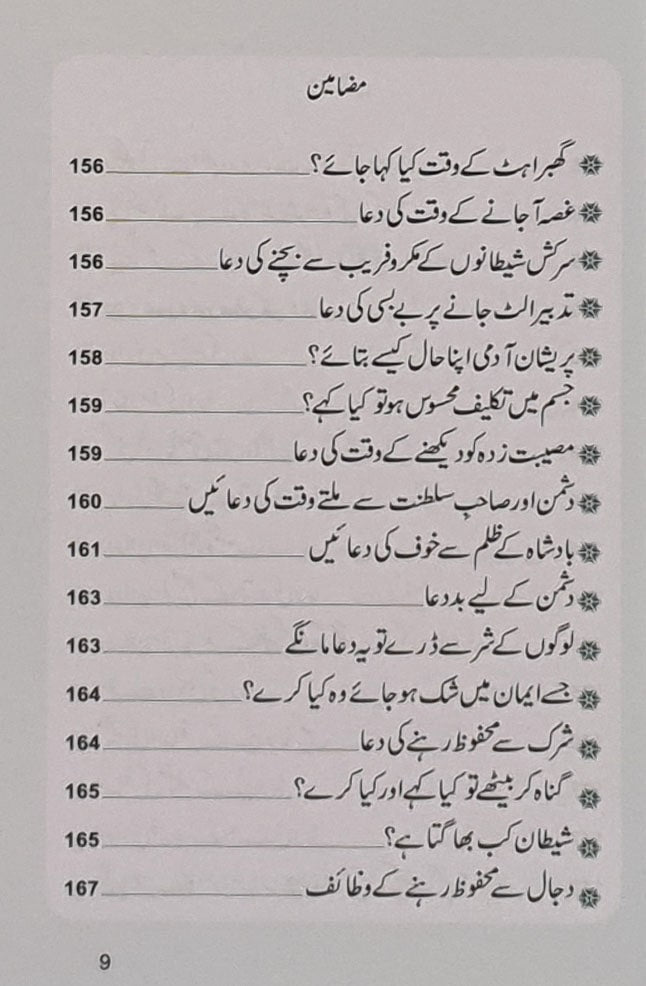 مضامین
گھبراہٹ کے وقت کیا کہا جائے؟ 156
غصہ آ جانے کے وقت کی دعا 156
سرکش شیطانوں کے مکر و فریب سے بچنے کی دعا 156
تدبیر الٹ جانے پر بے بسی کی دعا 157
پریشان آدمی اپنا حال کیسے بتائے؟ 158
جسم میں تکلیف محسوس ہو تو کیا کہے؟ 159
مصیبت زدہ کو دیکھنے کے وقت کی دعا 159
دشمن اور صاحبِ سلطنت سے ملتے وقت کی دعائیں 160
بادشاہ کے ظلم سے خوف کی دعائیں 161
دشمن کے لیے بددعا 163
لوگوں کے شر سے ڈرے تو یہ دعا مانگے 163
جسے ایمان میں شک ہو جائے وہ کیا کرے؟ 164
شرک سے محفوظ رہنے کی دعا 164
گناہ کر بیٹھے تو کیا کہے اور کیا کرے؟ 165
شیطان کب بھاگتا ہے؟ 165
دجال سے محفوظ رہنے کے وظائف 167
9